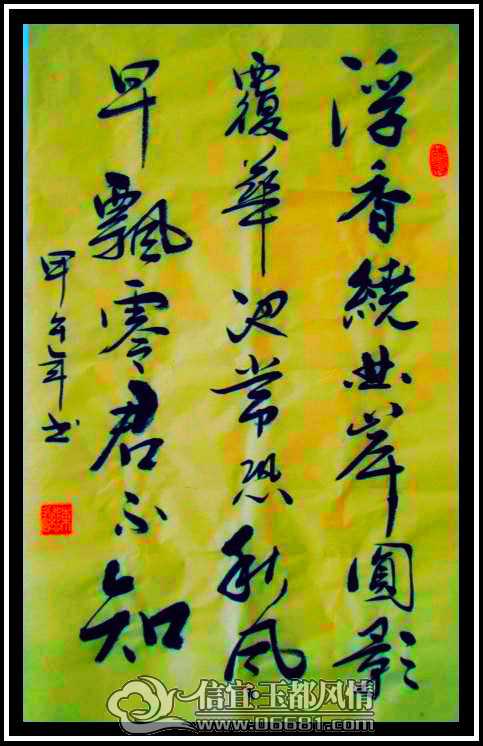 浮香繞曲岸圓影
覆華池常恐秋風
早飄零君不知
甲午年书
信宜玉都风情
www.06681.com